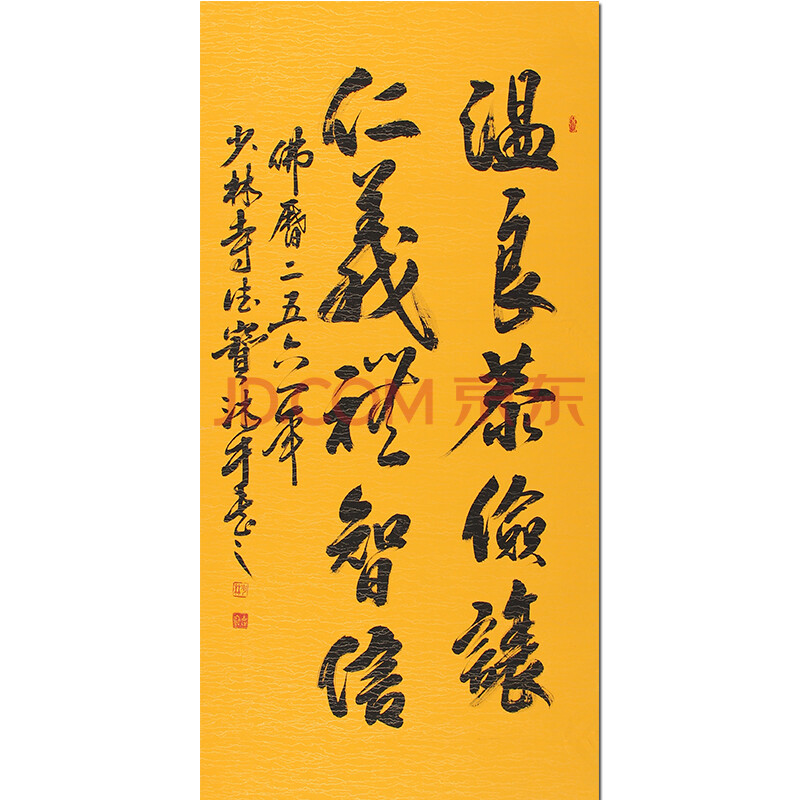 溫良恭儉讓
仁義禮智信
佛曆二五六一年
少林寺德寶沐手書之
JD.COM 京东